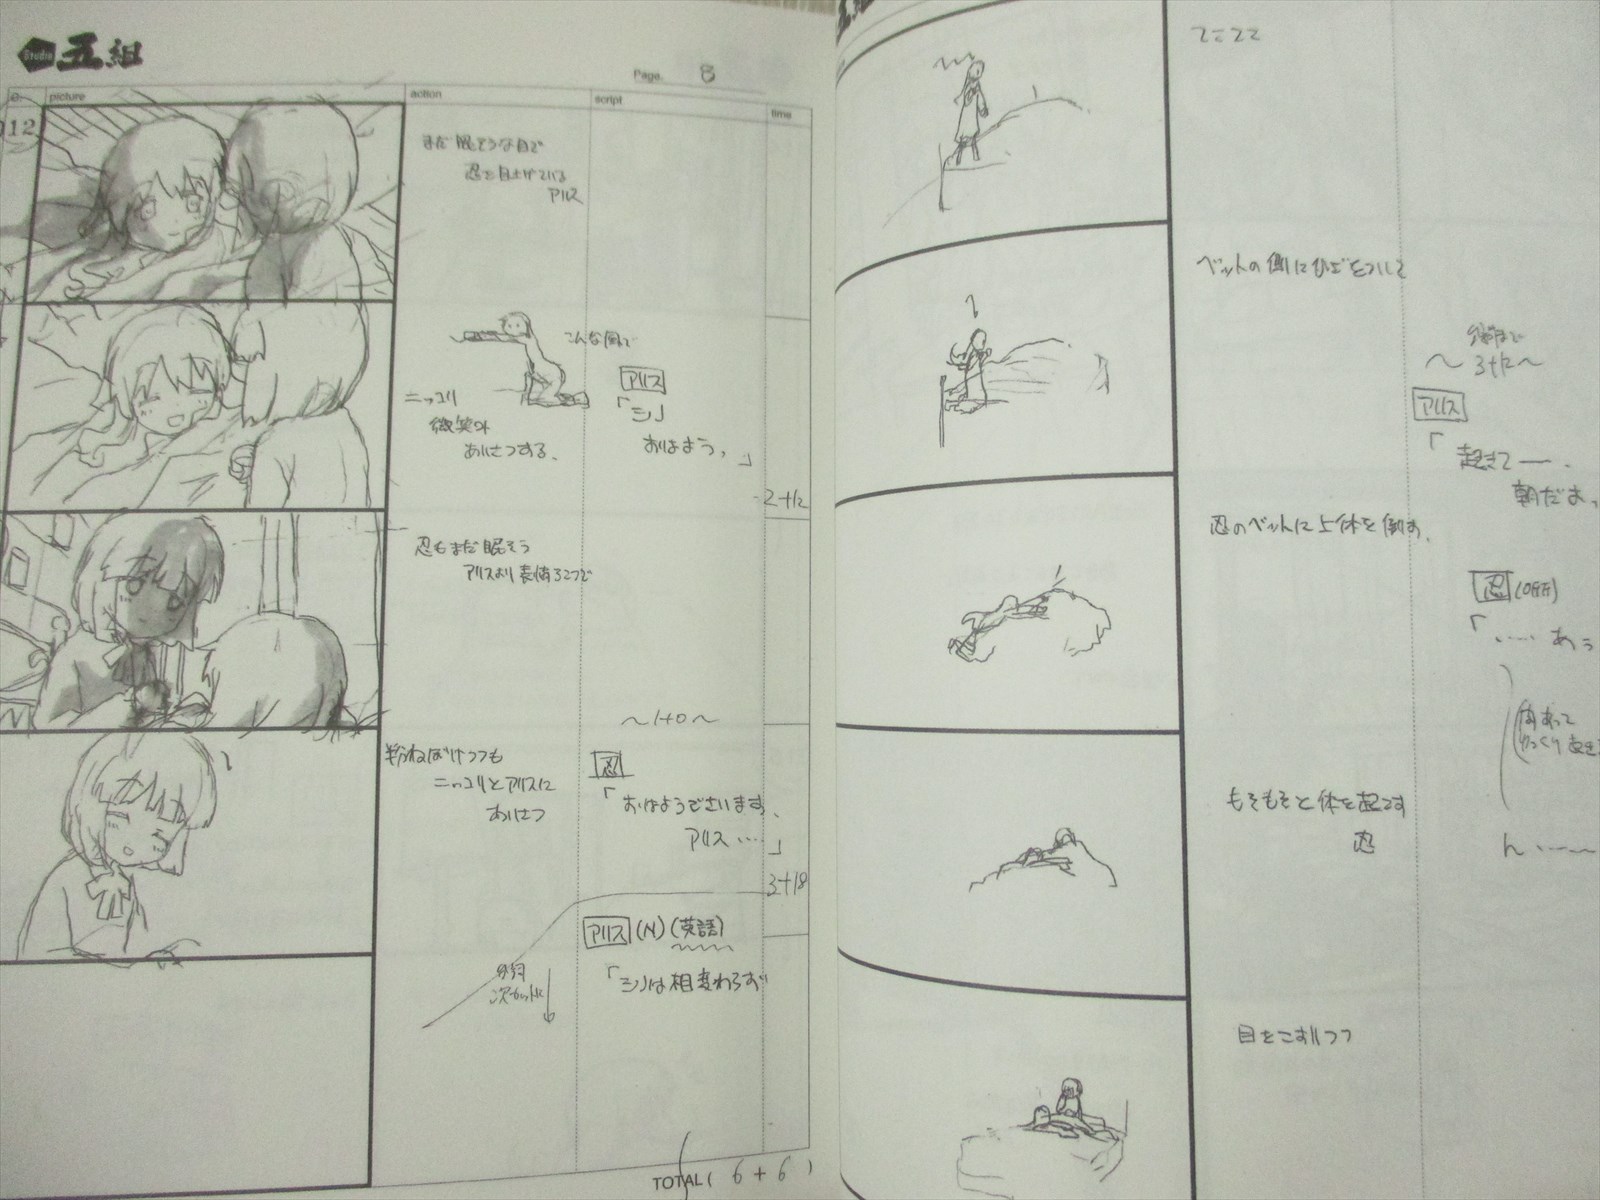 Studio 五組
Page. 8
C. picture action script time
012
まだ眠そうな目で
忍を見上げている
アリス
こんな風で
ニッコリ
微笑み
あいさつする、
アリス
「シノ
おはよう。」
2+12
忍もまだ眠そう
アリスより表情うつろで
〜1+0〜
半分ねぼけつつも
ニッコリとアリスに
あいさつ
忍
「おはようございます、
アリス…」
3+18
アリス (N) (英語)
「シノは相変わらず
次カットに
TOTAL ( 6 + 6 )
五組
てこてこ
ベットの側にひざをついて
〜3+12〜
アリス
「起きてー、
朝だよ。
忍のベットに上体を倒す、
忍 (OFF)
「……あぅ
ゆっくり
もそもそと体を起こす
忍
ん……
目をこすりつつ